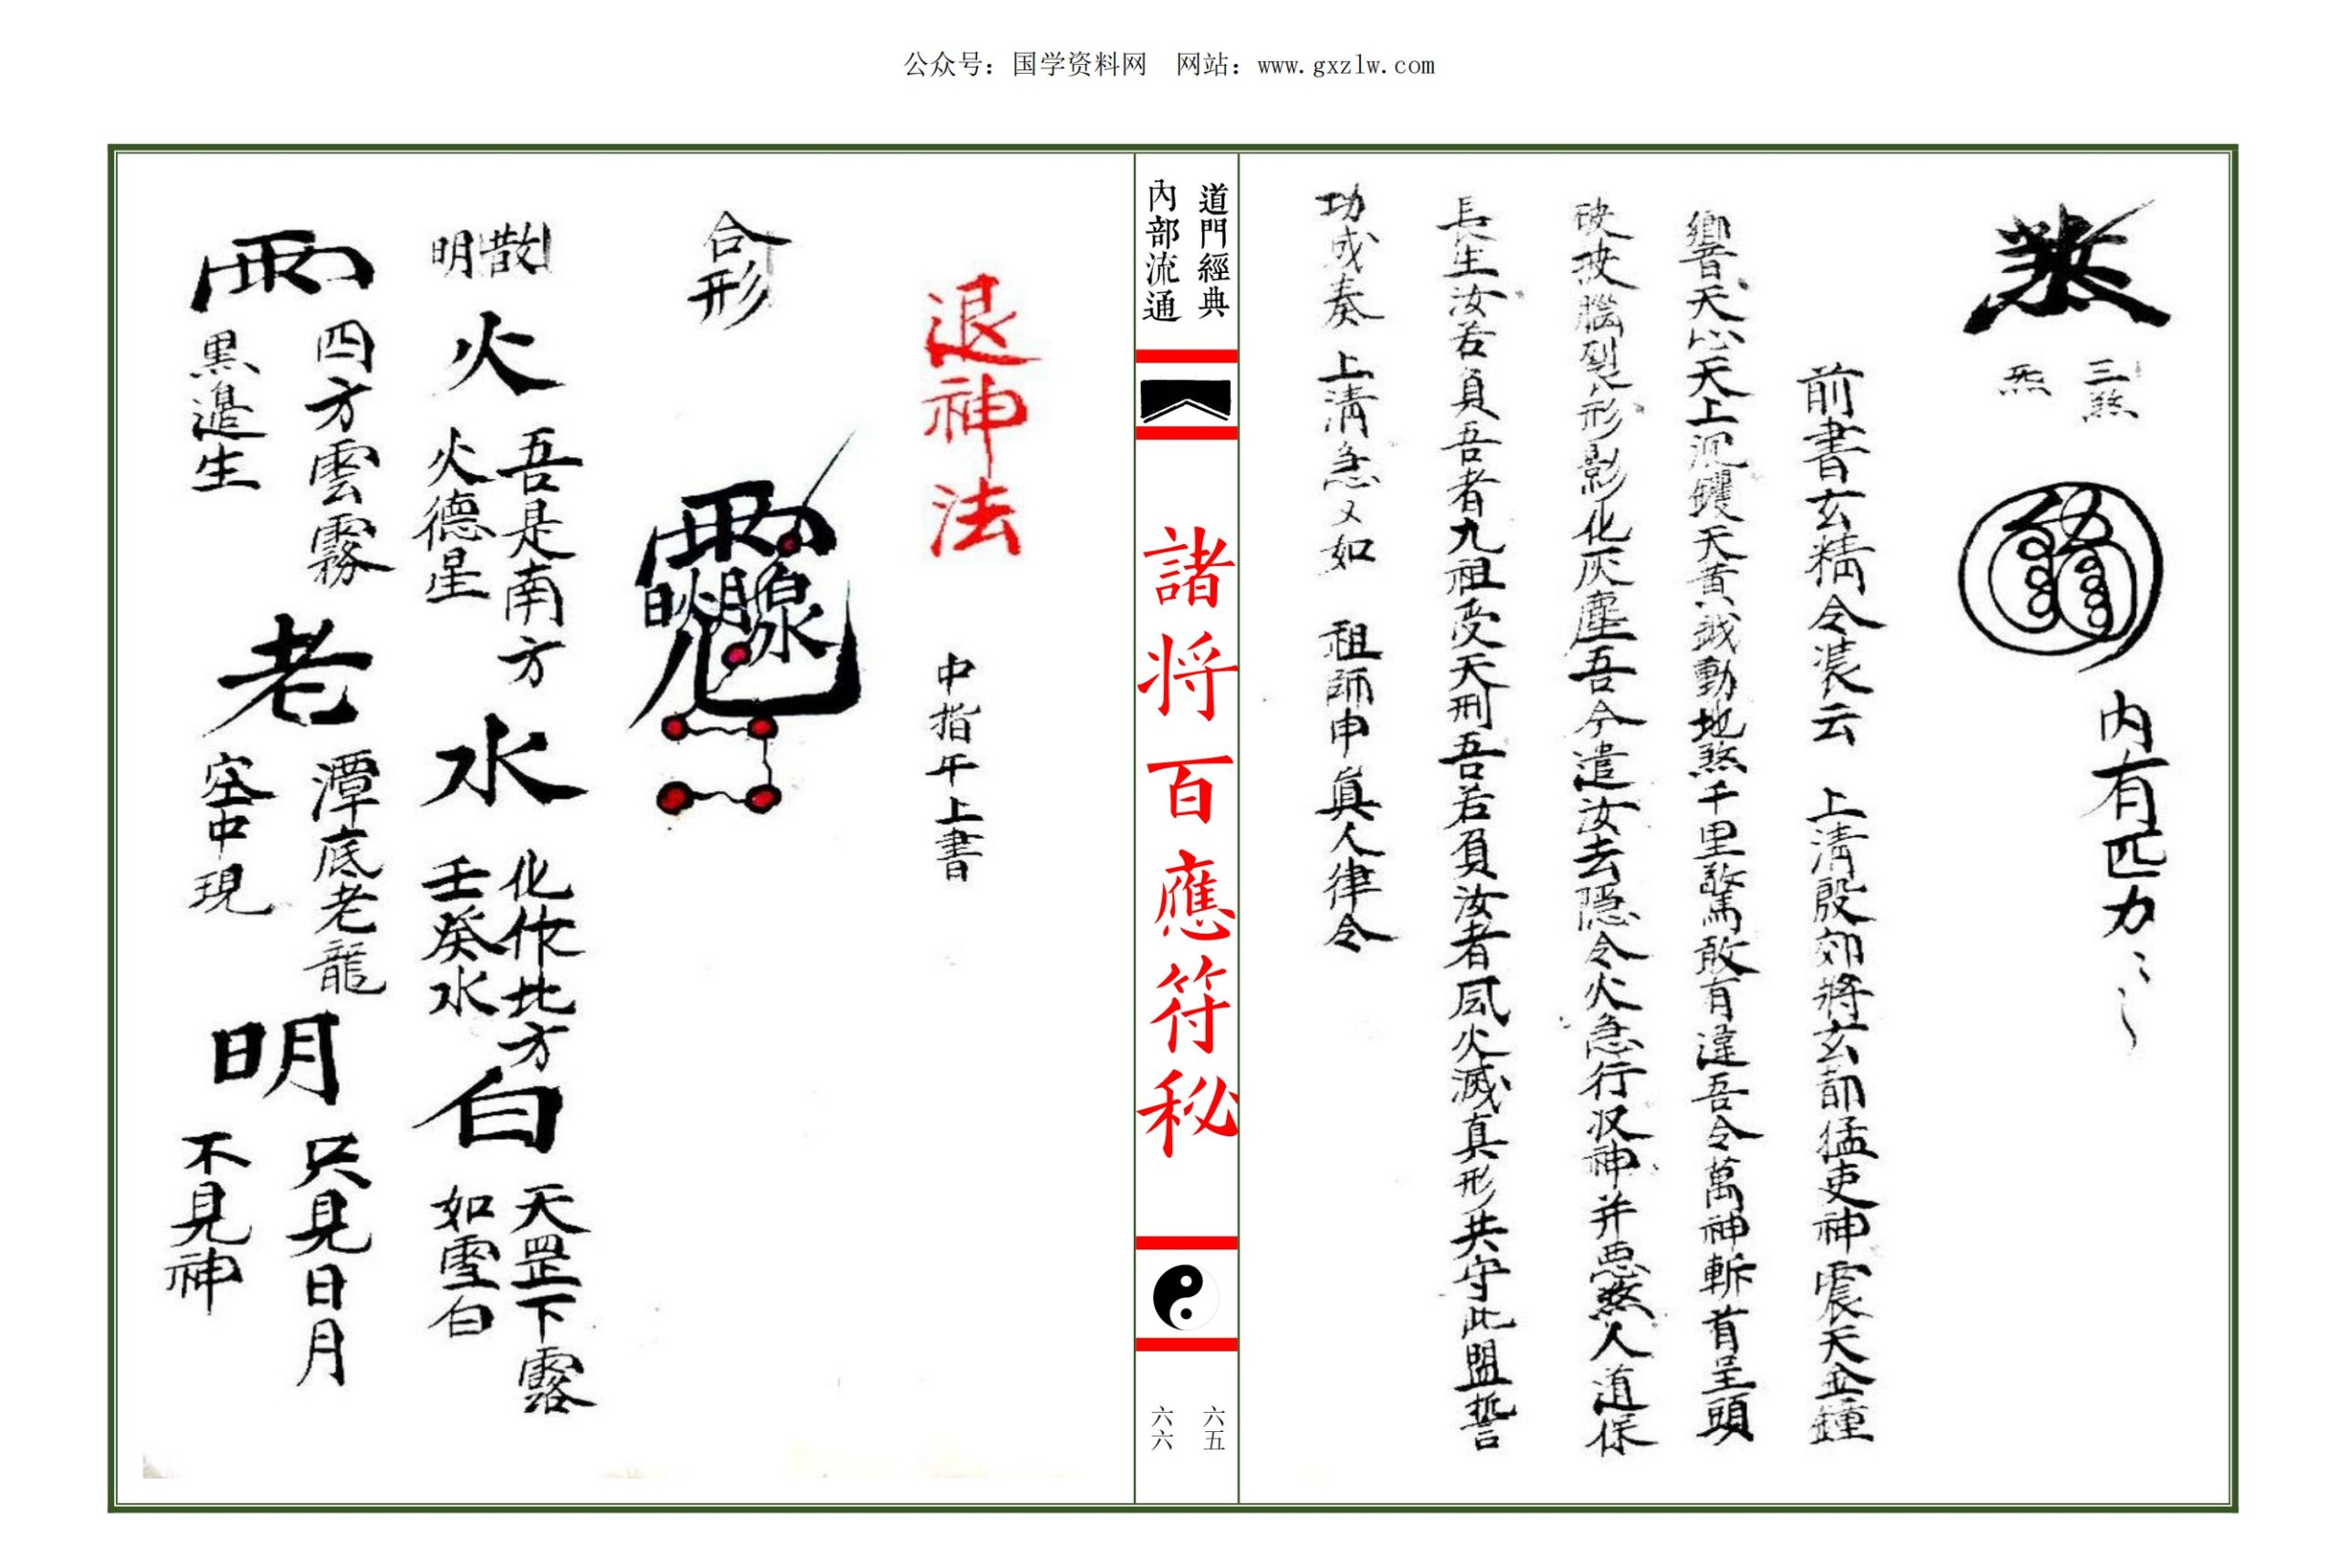 公众号：国学资料网　网站：www.gxzlw.com
三煞
炁
内有匹力
前書玄精令裝云　上清殷郊將玄都猛吏神震天金鐘
響天心天上天黄鉞動地煞千里驚敢有違吾令萬神斬首呈頭
破腦裂形影化灰塵吾今遣汝去隐令火急行収神并惡煞人道保
長生汝若負吾者九祖受天刑吾若負汝者風火滅真形共守此盟誓
功成奏　上清急〻如　祖師申真人律令
道門經典
內部流通
諸將百應符秘
六五
六六
退神法
中指午上書
合形
散
明
火
吾是南方
火德星
水
化作北方
壬癸水
白
天罡下露
如雪白
雨
四方雲霧
黑邉生
老
潭底老龍
空中現
明
只見日月
不見神